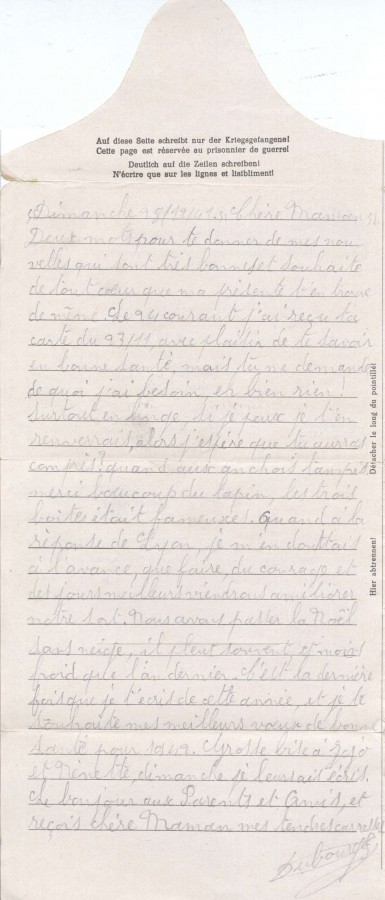 Auf diese Seite schreibt nur der Kriegsgefangene!
Cette page est réservée au prisonnier de guerre!
Deutlich auf die Zeilen schreiben!
N'écrire que sur les lignes et lisiblement!
Dimanche Chère Maman
Deux mots pour te donner de mes nou
velles qui sont très bonnes et souhaite
de tout cœur que ma présente t'en trouve
de même. Le 24 courant j'ai reçu ta
carte du 23/11, avec plaisir de te savoir
en bonne santé mais tu me demande
de quoi j'ai besoin, eh bien rien!
surtout en linge. Si je peux je t'en
renverrais, alors j'espère que tu auras
compris? quand aux anchois tampis
merci beaucoup du lapin, les trois
boites était fameuse! Quand à la
réponse de Lyon je m'en douttais
à l'avance, que faire, du courage et
des jours meilleurs viendrons améliorer
notre sort. Nous avons passer la Noël
sans neige, il pleut souvent, et mois
froid que l'an dernier. C'est la dernière
fois que je t'écris de cette année, et je te
souhaite mes meilleurs vœux de bonne
santé pour 1942. Grosse bise à
et Nénette, dimanche je leurs ait écris.
Le bonjour aux Parents et Amis, et
reçois chère Maman mes tendres
Dubourg
Hier abtrennen!
Détacher le long du pointillé!